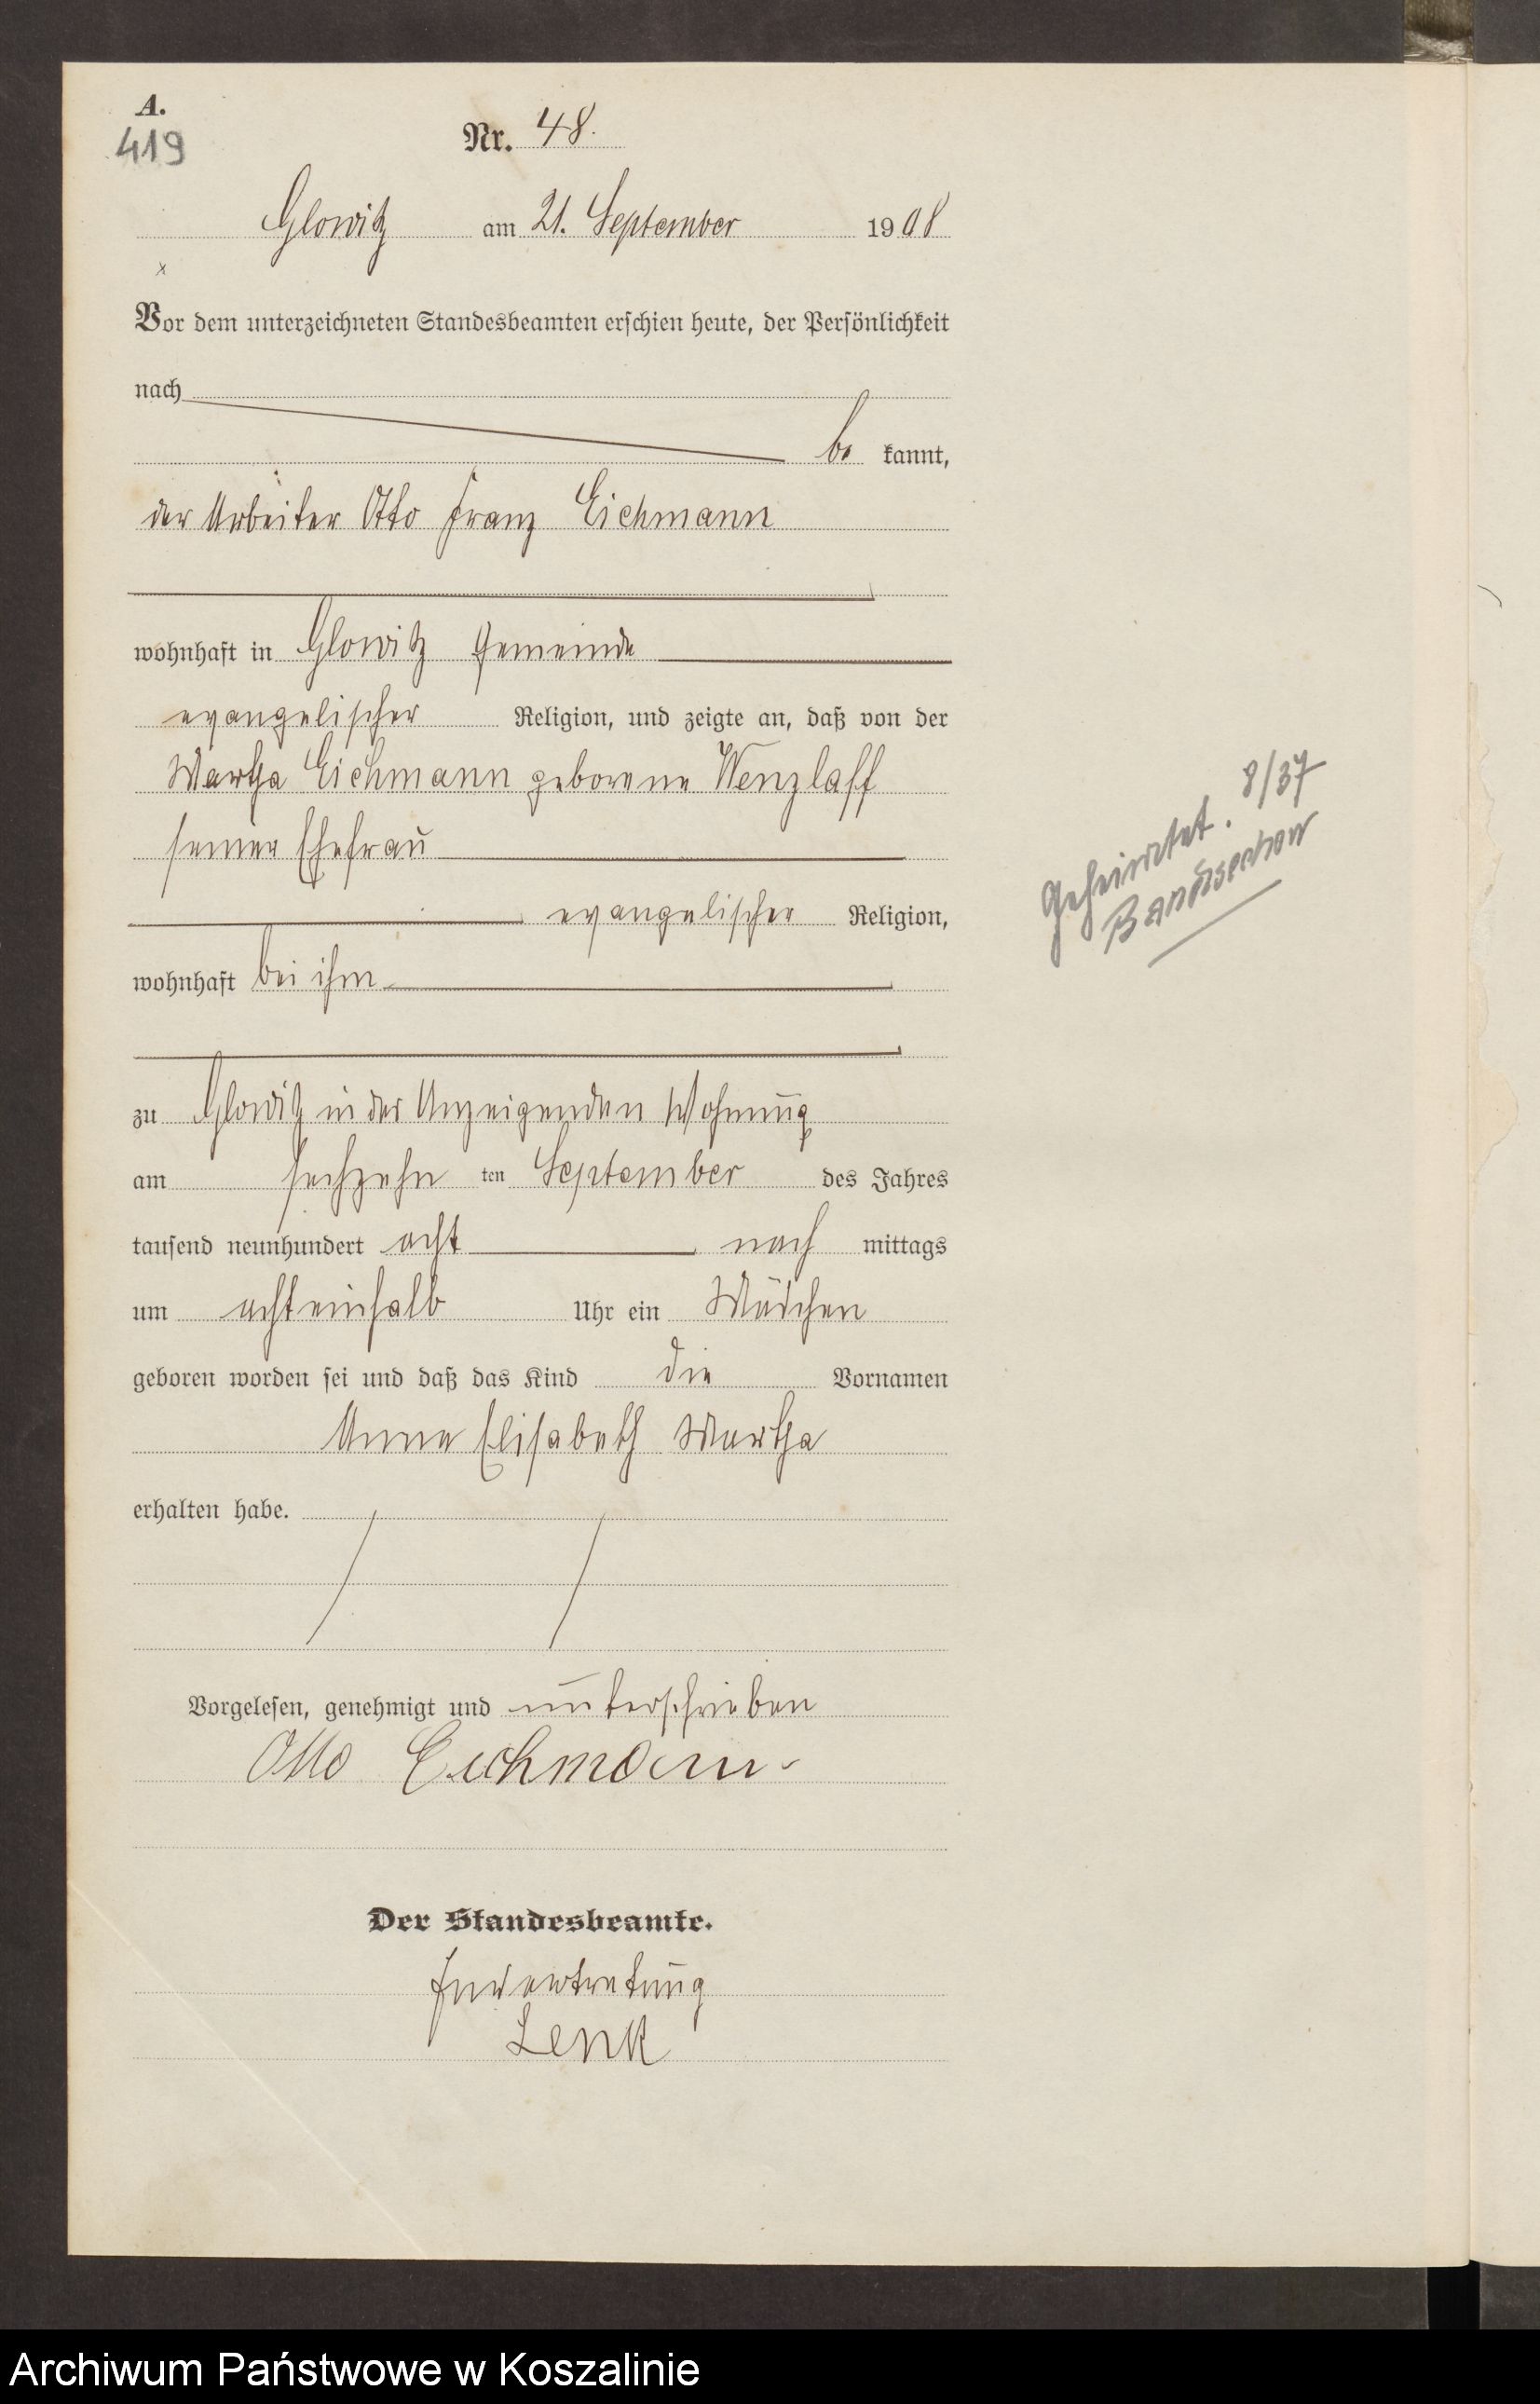 A.
419
Nr. 48.
Glowitz am 21. September 1908
x
Vor dem unterzeichneten Standesbeamten erschien heute, der Persönlichkeit
nach
be kannt,
der Arbeiter Otto Franz Eichmann
wohnhaft in Glowitz Gemeinde
evangelischer Religion, und zeigte an, daß von der
Martha Eichmann geborene Wenzlaff
seiner Ehefrau
evangelischer Religion,
wohnhaft bei ihm
zu Glowitz in der Anzeigenden Wohnung
am sechzehn ten September des Jahres
tausend neunhundert acht nach mittags
um achteinhalb Uhr ein Mädchen
geboren worden sei und daß das Kind die Vornamen
Anna Elisabeth Martha
erhalten habe.
Vorgelesen, genehmigt und unterschrieben
Otto Eichmann
Der Standesbeamte.
In Vertretung
Lenk
Geheiratet. 8/37
Archiwum Państwowe w Koszalinie